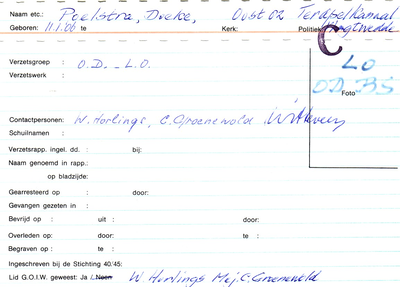 Naam etc.: Poelstra, Doeke, Oost 02 Terapelkanaal
Geboren: 11.1.06 te Kerk: Politiek:
C
LO
OD BS
Foto
Verzetsgroep : O.D. - L.O.
Verzetswerk :
Contactpersonen: W. Horlings, C. Groeneveld
Schuilnaam :
Verzetsrapp. ingel. dd. : bij:
Naam genoemd in rapp.:
op bladzijde:
Gearresteerd op : door:
Gevangen gezeten in :
Bevrijd op : uit : door:
Overleden op: door: te :
Begraven op : te :
Ingeschreven bij de Stichting 40/45:
Lid G.O.I.W. geweest: Ja / Neen W. Horlings Mej. C. Groeneveld